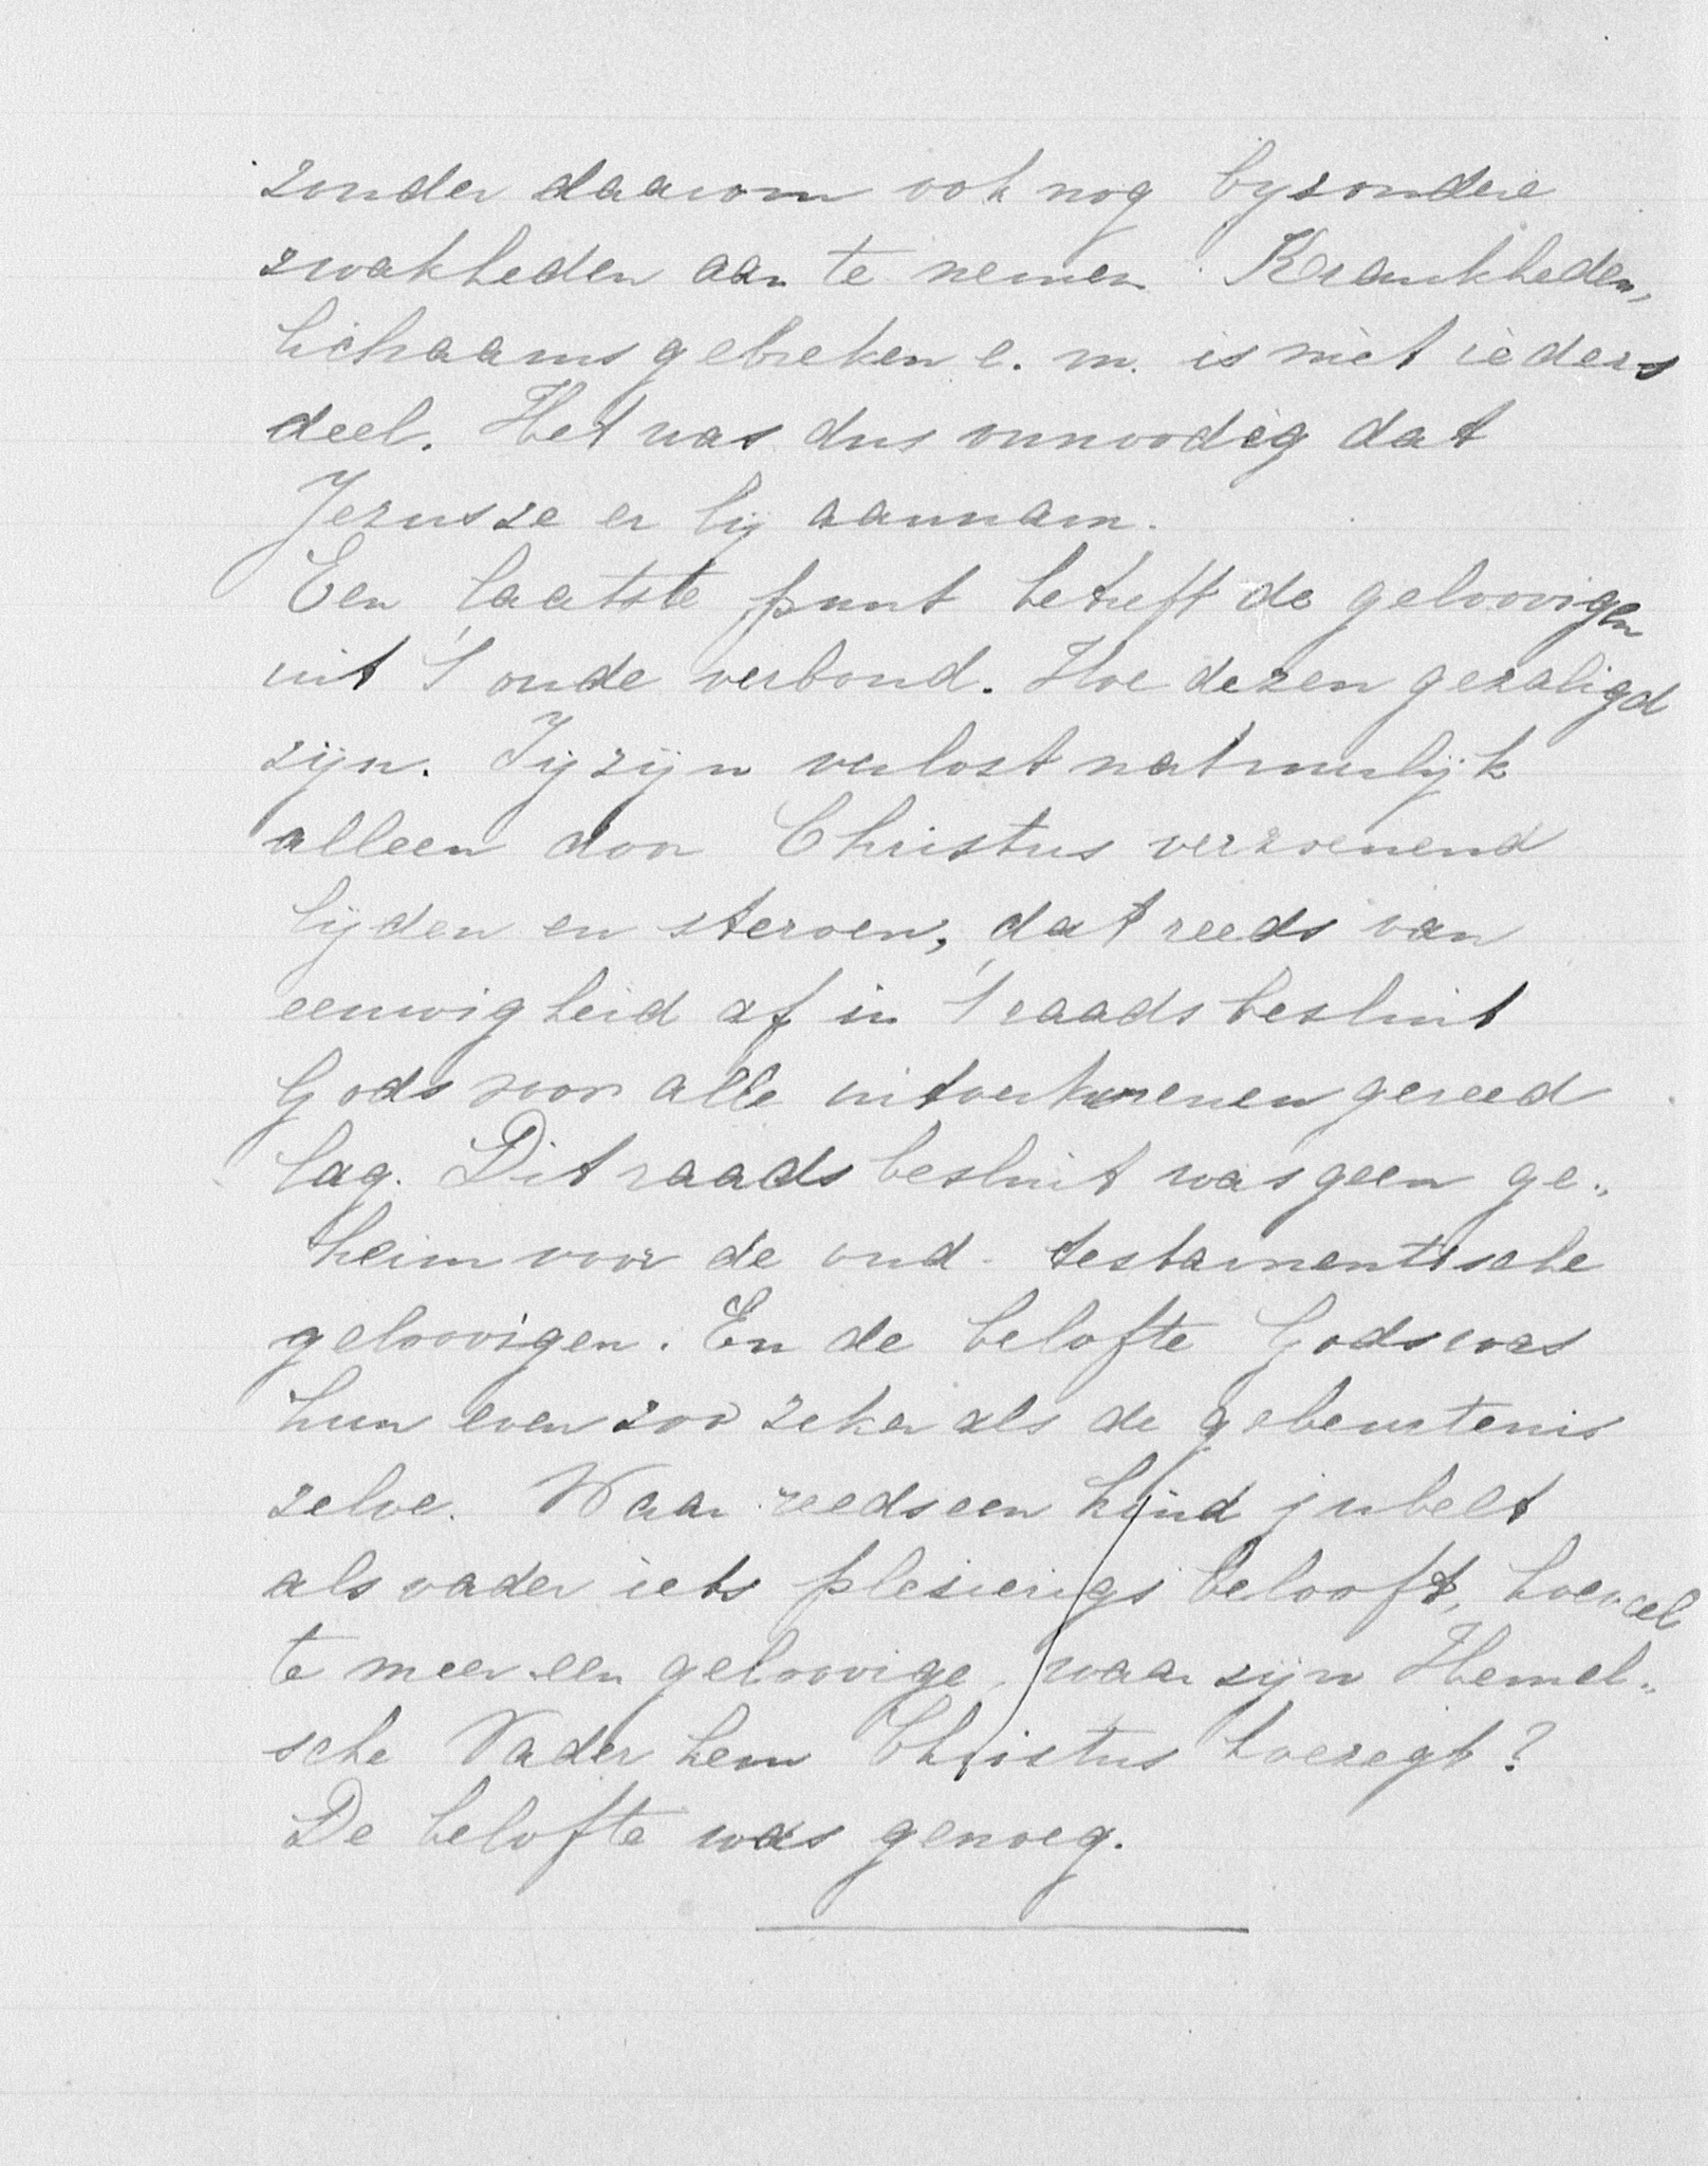 zonder daarom ook nog byzondere
zwakheden aan te nemen. Krankheden,
lichaamsgebreken e. m. is niet ieders
deel. Het was dus onnoodig dat
Jezus ze er bij aannam.
Een laatste punt betreft de geloovigen
uit 't oude verbond. Hoe dezen gezaligd
zijn. Zij zijn verlost natuurlijk
alleen door Christus verzoenend
lijden en sterven, dat reeds van
eeuwigheid af in 't raadsbesluit
Gods voor alle uitverkorenen gereed
lag. Dit raadsbesluit was geen ge„
heim voor de oud-testamentische
geloovigen. En de belofte Gods was
hun even zoo zeker als de gebeurtenis
zelve. Waar reeds een kind jubelt
als vader iets plesierigs belooft, hoeveel
te meer een geloovige, waar zijn Hemel„
sche Vader hem Christus toezegt?
De belofte was genoeg.